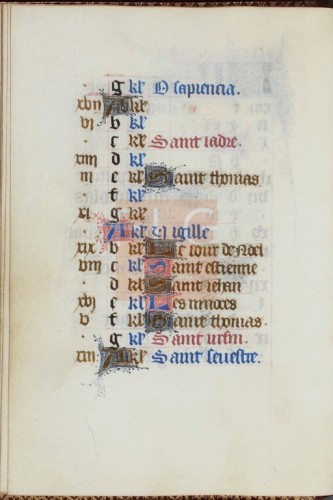 g kl' O sapiencia.
xvii A kl'
vi b kl'
c kl' Saint ladre.
xiiii d kl'
iii e kl' Saint thomas
f kl'
xi g kl'
A kl' Vigille
xix b kl' Le iour de Noel
viii c kl' Saint estienne
d kl' Saint iehan
xvi e kl' Les innoces
v f kl' Saint thomas.
g kl' Saint ursin.
xiii A kl' Saint sevestre.